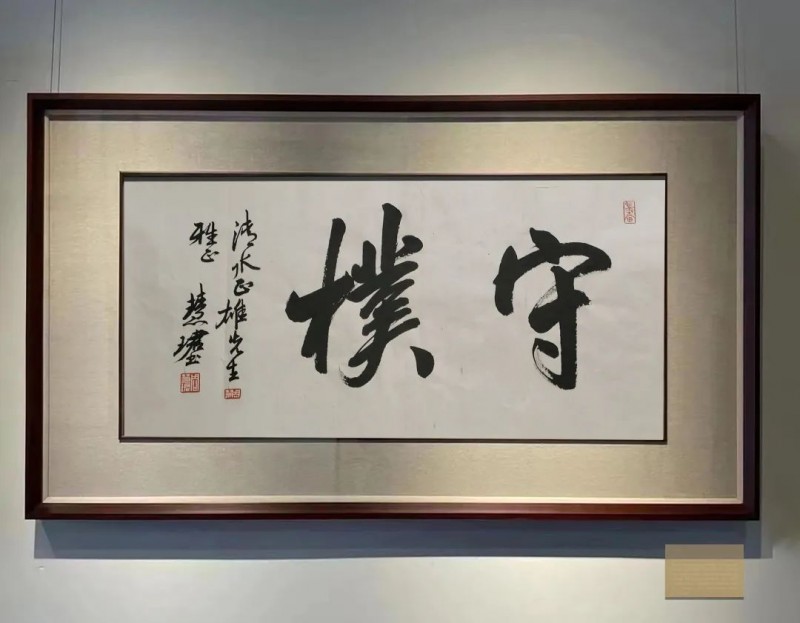 守樸
清水正雄先生
雅正
慧瑬